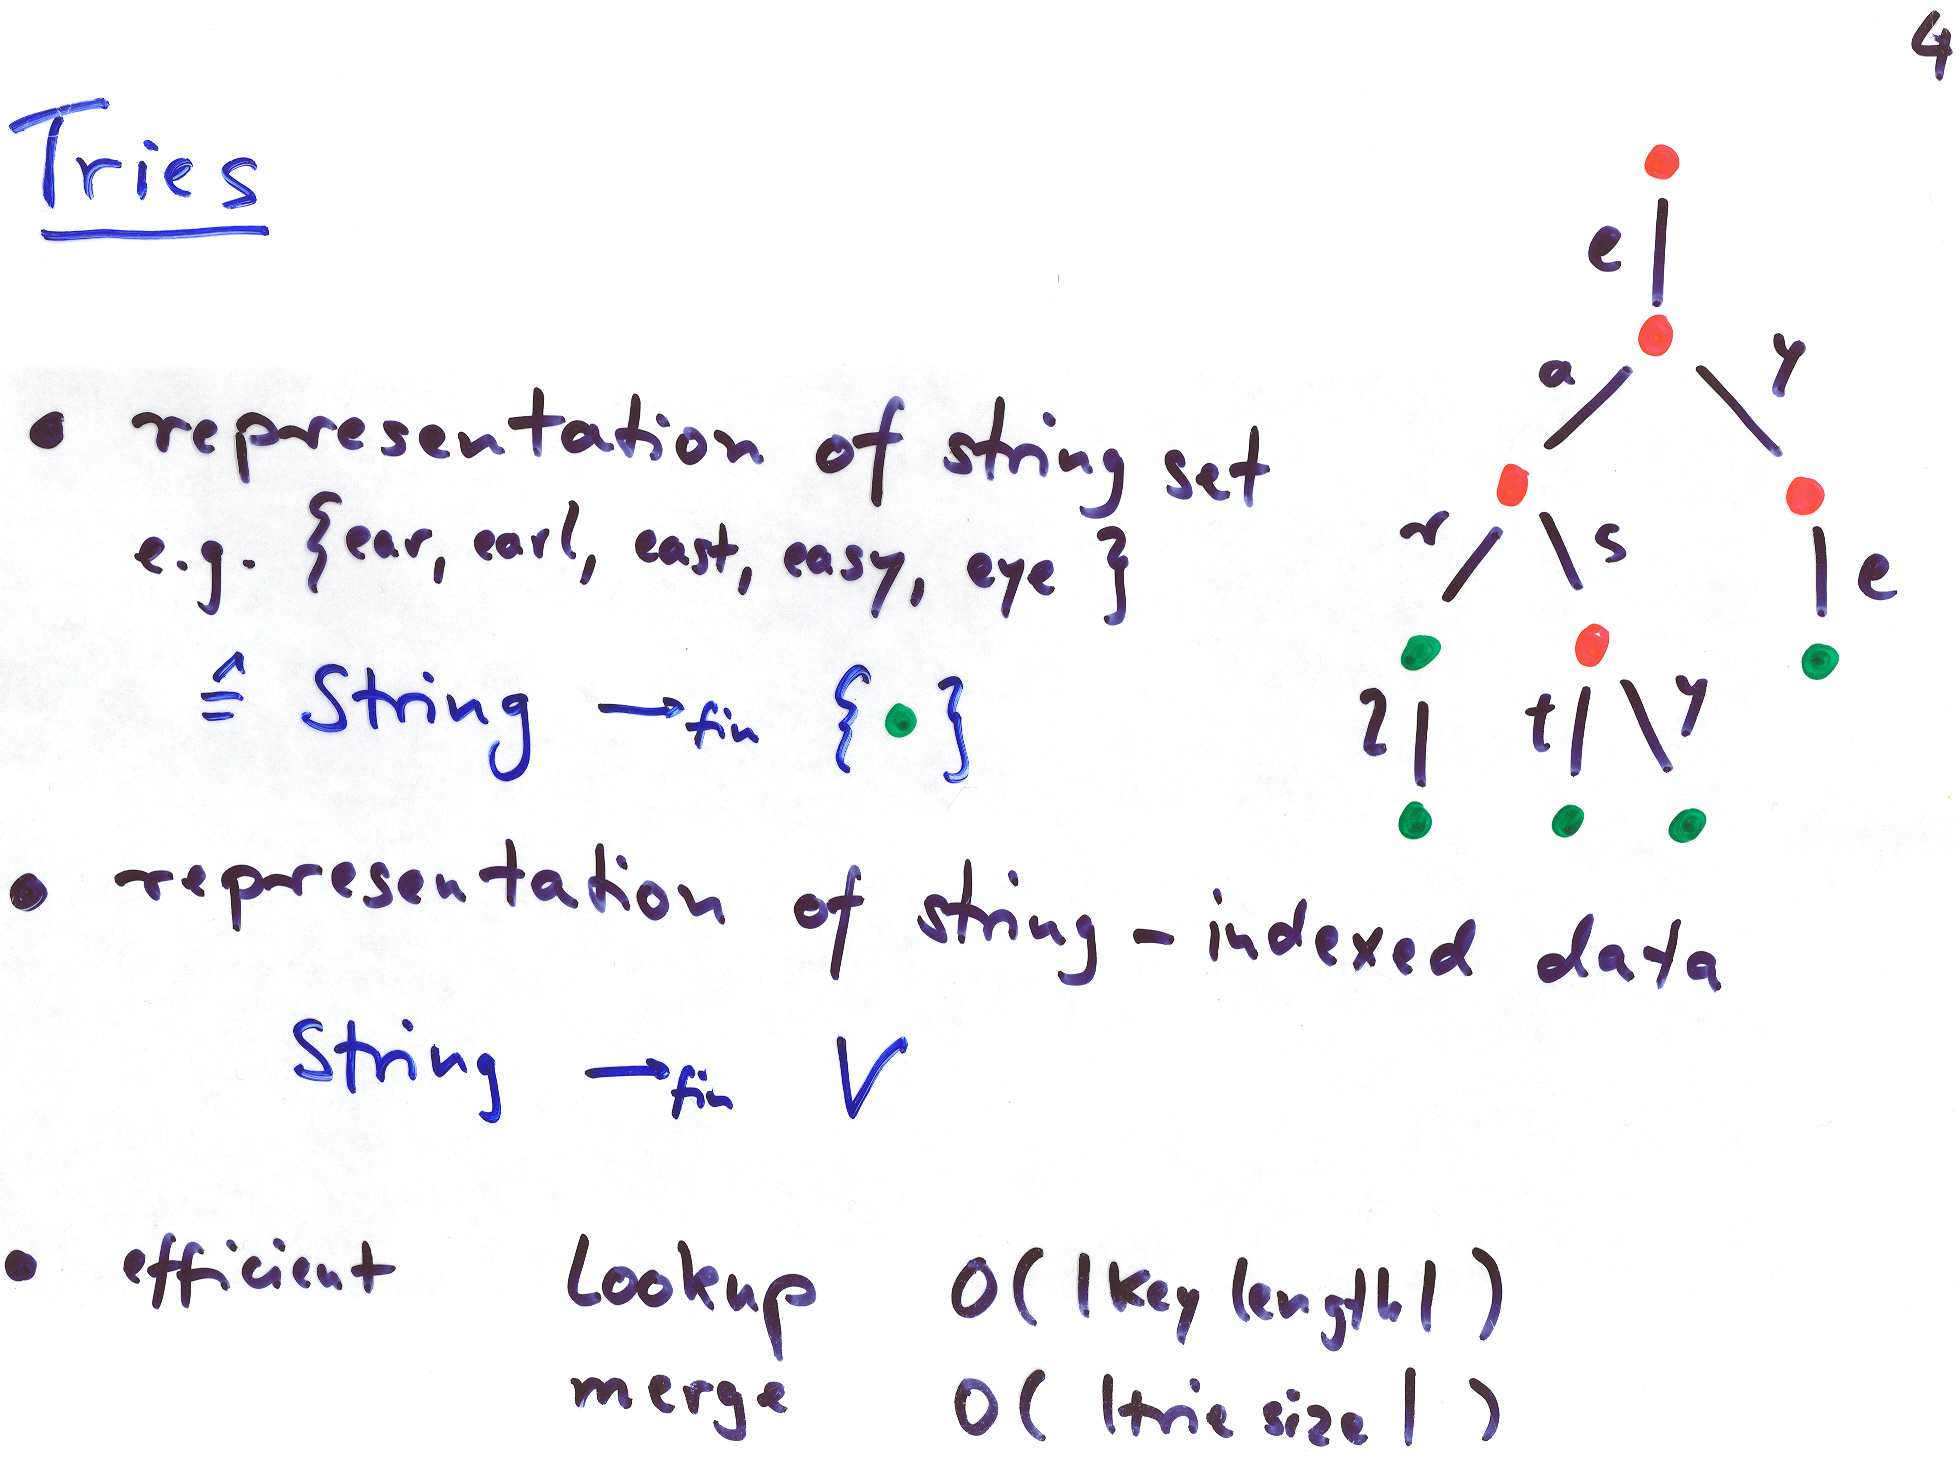 4
Tries
e
a y
r s e
l t y
• representation of string set
e.g. {ear, earl, east, easy, eye}
≙ String →fin {•}
• representation of string-indexed data
String →fin V
• efficient Lookup O(|key length|)
merge O(|trie size|)